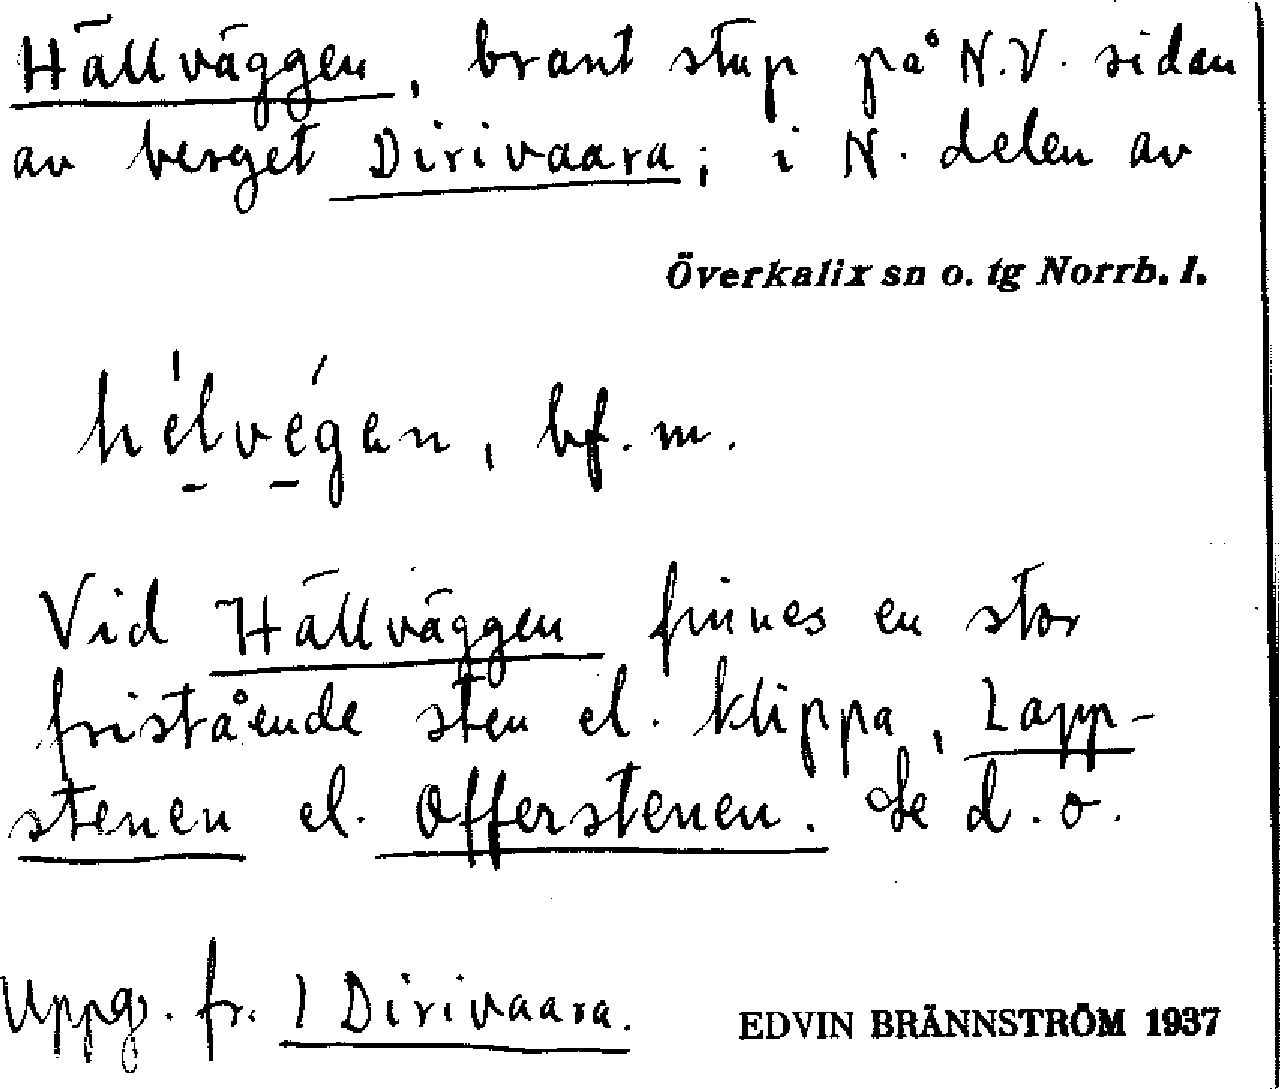 Hällväggen, brant stup på N.V. sidan
av berget Dirivaara; i N. delen av
Överkalix sn o. tg Norrb. l.
hélvégen, bf. m.
Vid Hällväggen finnes en stor
fristående sten el. klippa, Lapp-
stenen el. Offerstenen. Se d. o.
Uppg. fr. 1 Dirivaara.
EDVIN BRÄNNSTRÖM 1937